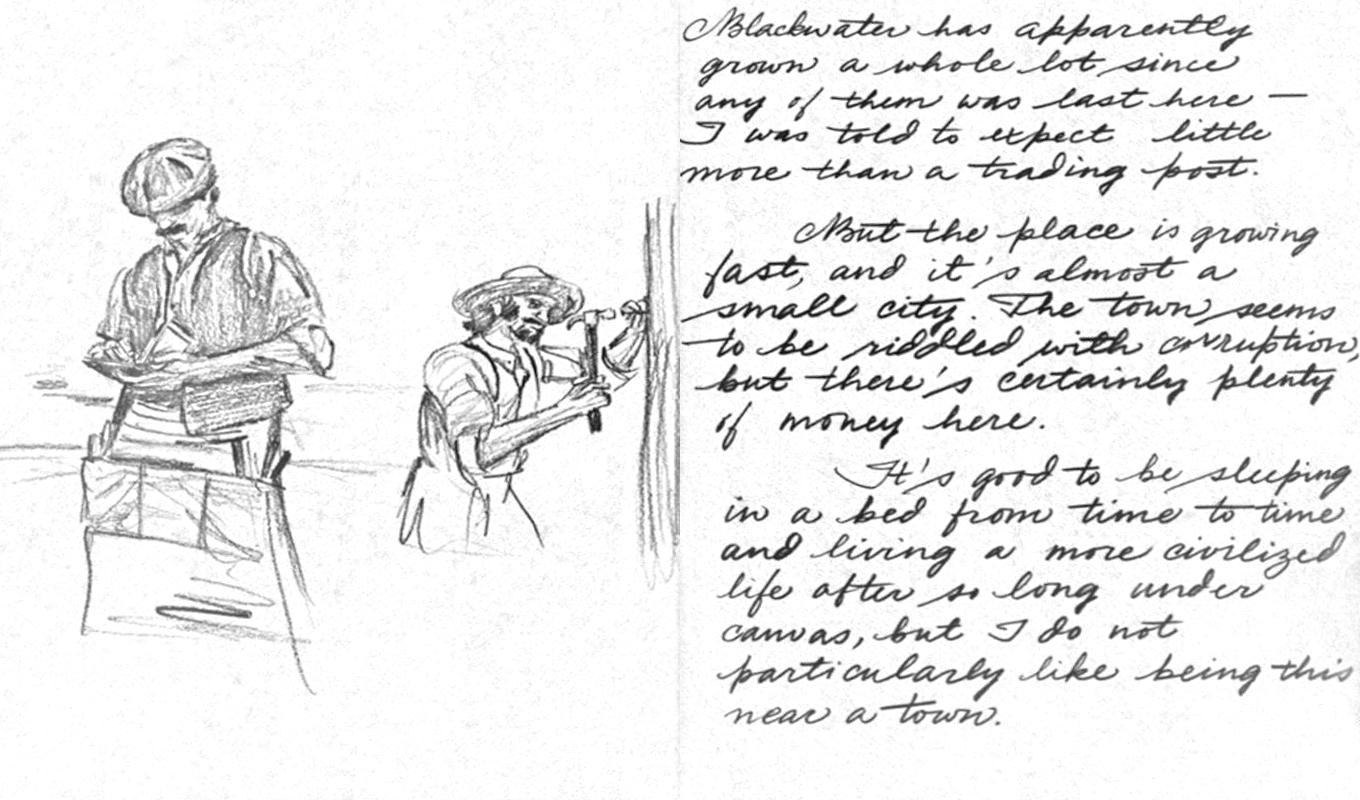 Blackwater has apparently
grown a whole lot since
any of them was last here —
I was told to expect little
more than a trading post.
But the place is growing
fast, and it's almost a
small city. The town seems
to be riddled with corruption,
but there's certainly plenty
of money here.
It's good to be sleeping
in a bed from time to time
and living a more civilized
life after so long under
canvas, but I do not
particularly like being this
near a town.